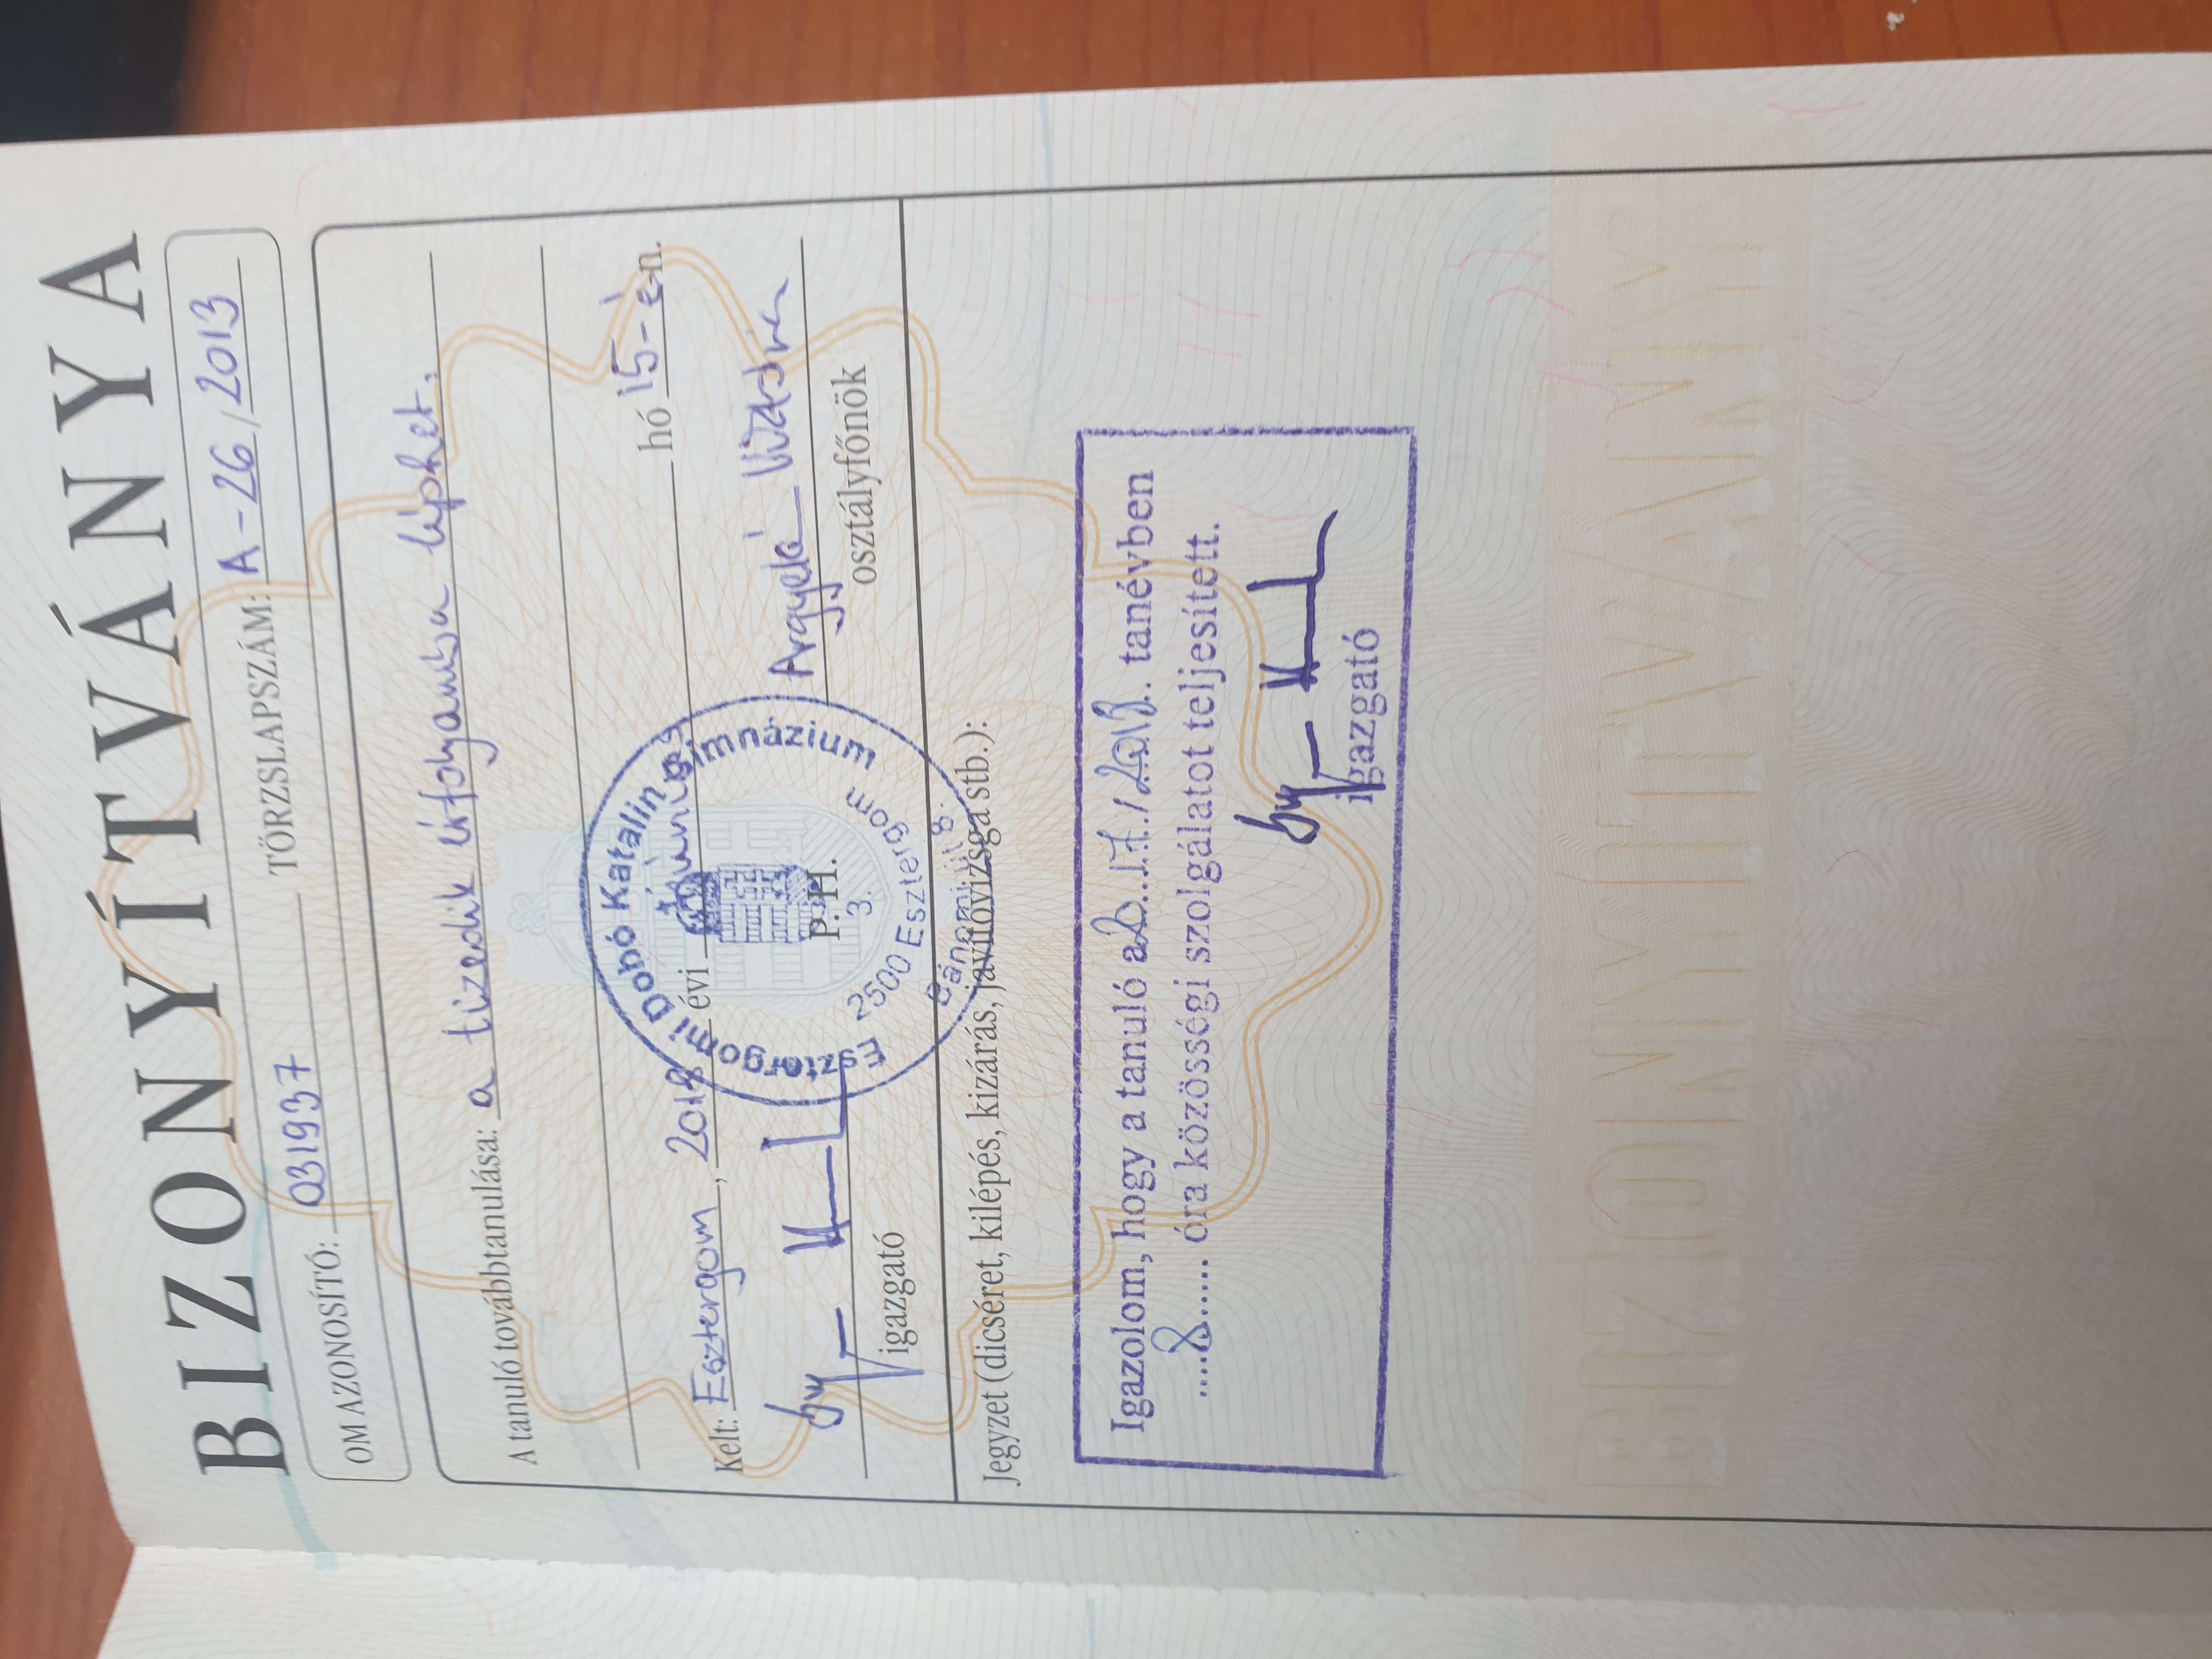 BIZONYÍTVÁNYA
OM AZONOSÍTÓ: 031937 TÖRZSLAPSZÁM: A-26/2013
A tanuló továbbtanulása: a tizedik évfolyamba léphet.
Kelt: Esztergom, 2018 évi június hó 15-én.
Esztergomi Dobó Katalin Gimnázium
P. H.
3.
2500 Esztergom
Bánomi út 8.
igazgató
Argyelá
osztályfőnök
Jegyzet (dicséret, kilépés, kizárás, javítóvizsga stb.):
Igazolom, hogy a tanuló a 2017/2018. tanévben
8 óra közösségi szolgálatot teljesített.
igazgató
BIZONYÍTVÁNY